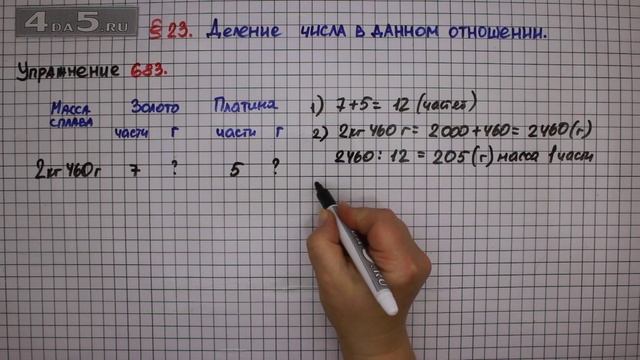 4DA5.RU
§ 23. Деление числа в данном отношении.
Упражнение 683.
Масса сплава
Золото
Платина
части г
части г
2кг 460г 7 ? 5 ?
1) 7+5= 12 (частей)
2) 2кг 460 г = 2000 + 460 = 2460 (г)
2460 : 12 = 205 (г) масса 1 части
3)